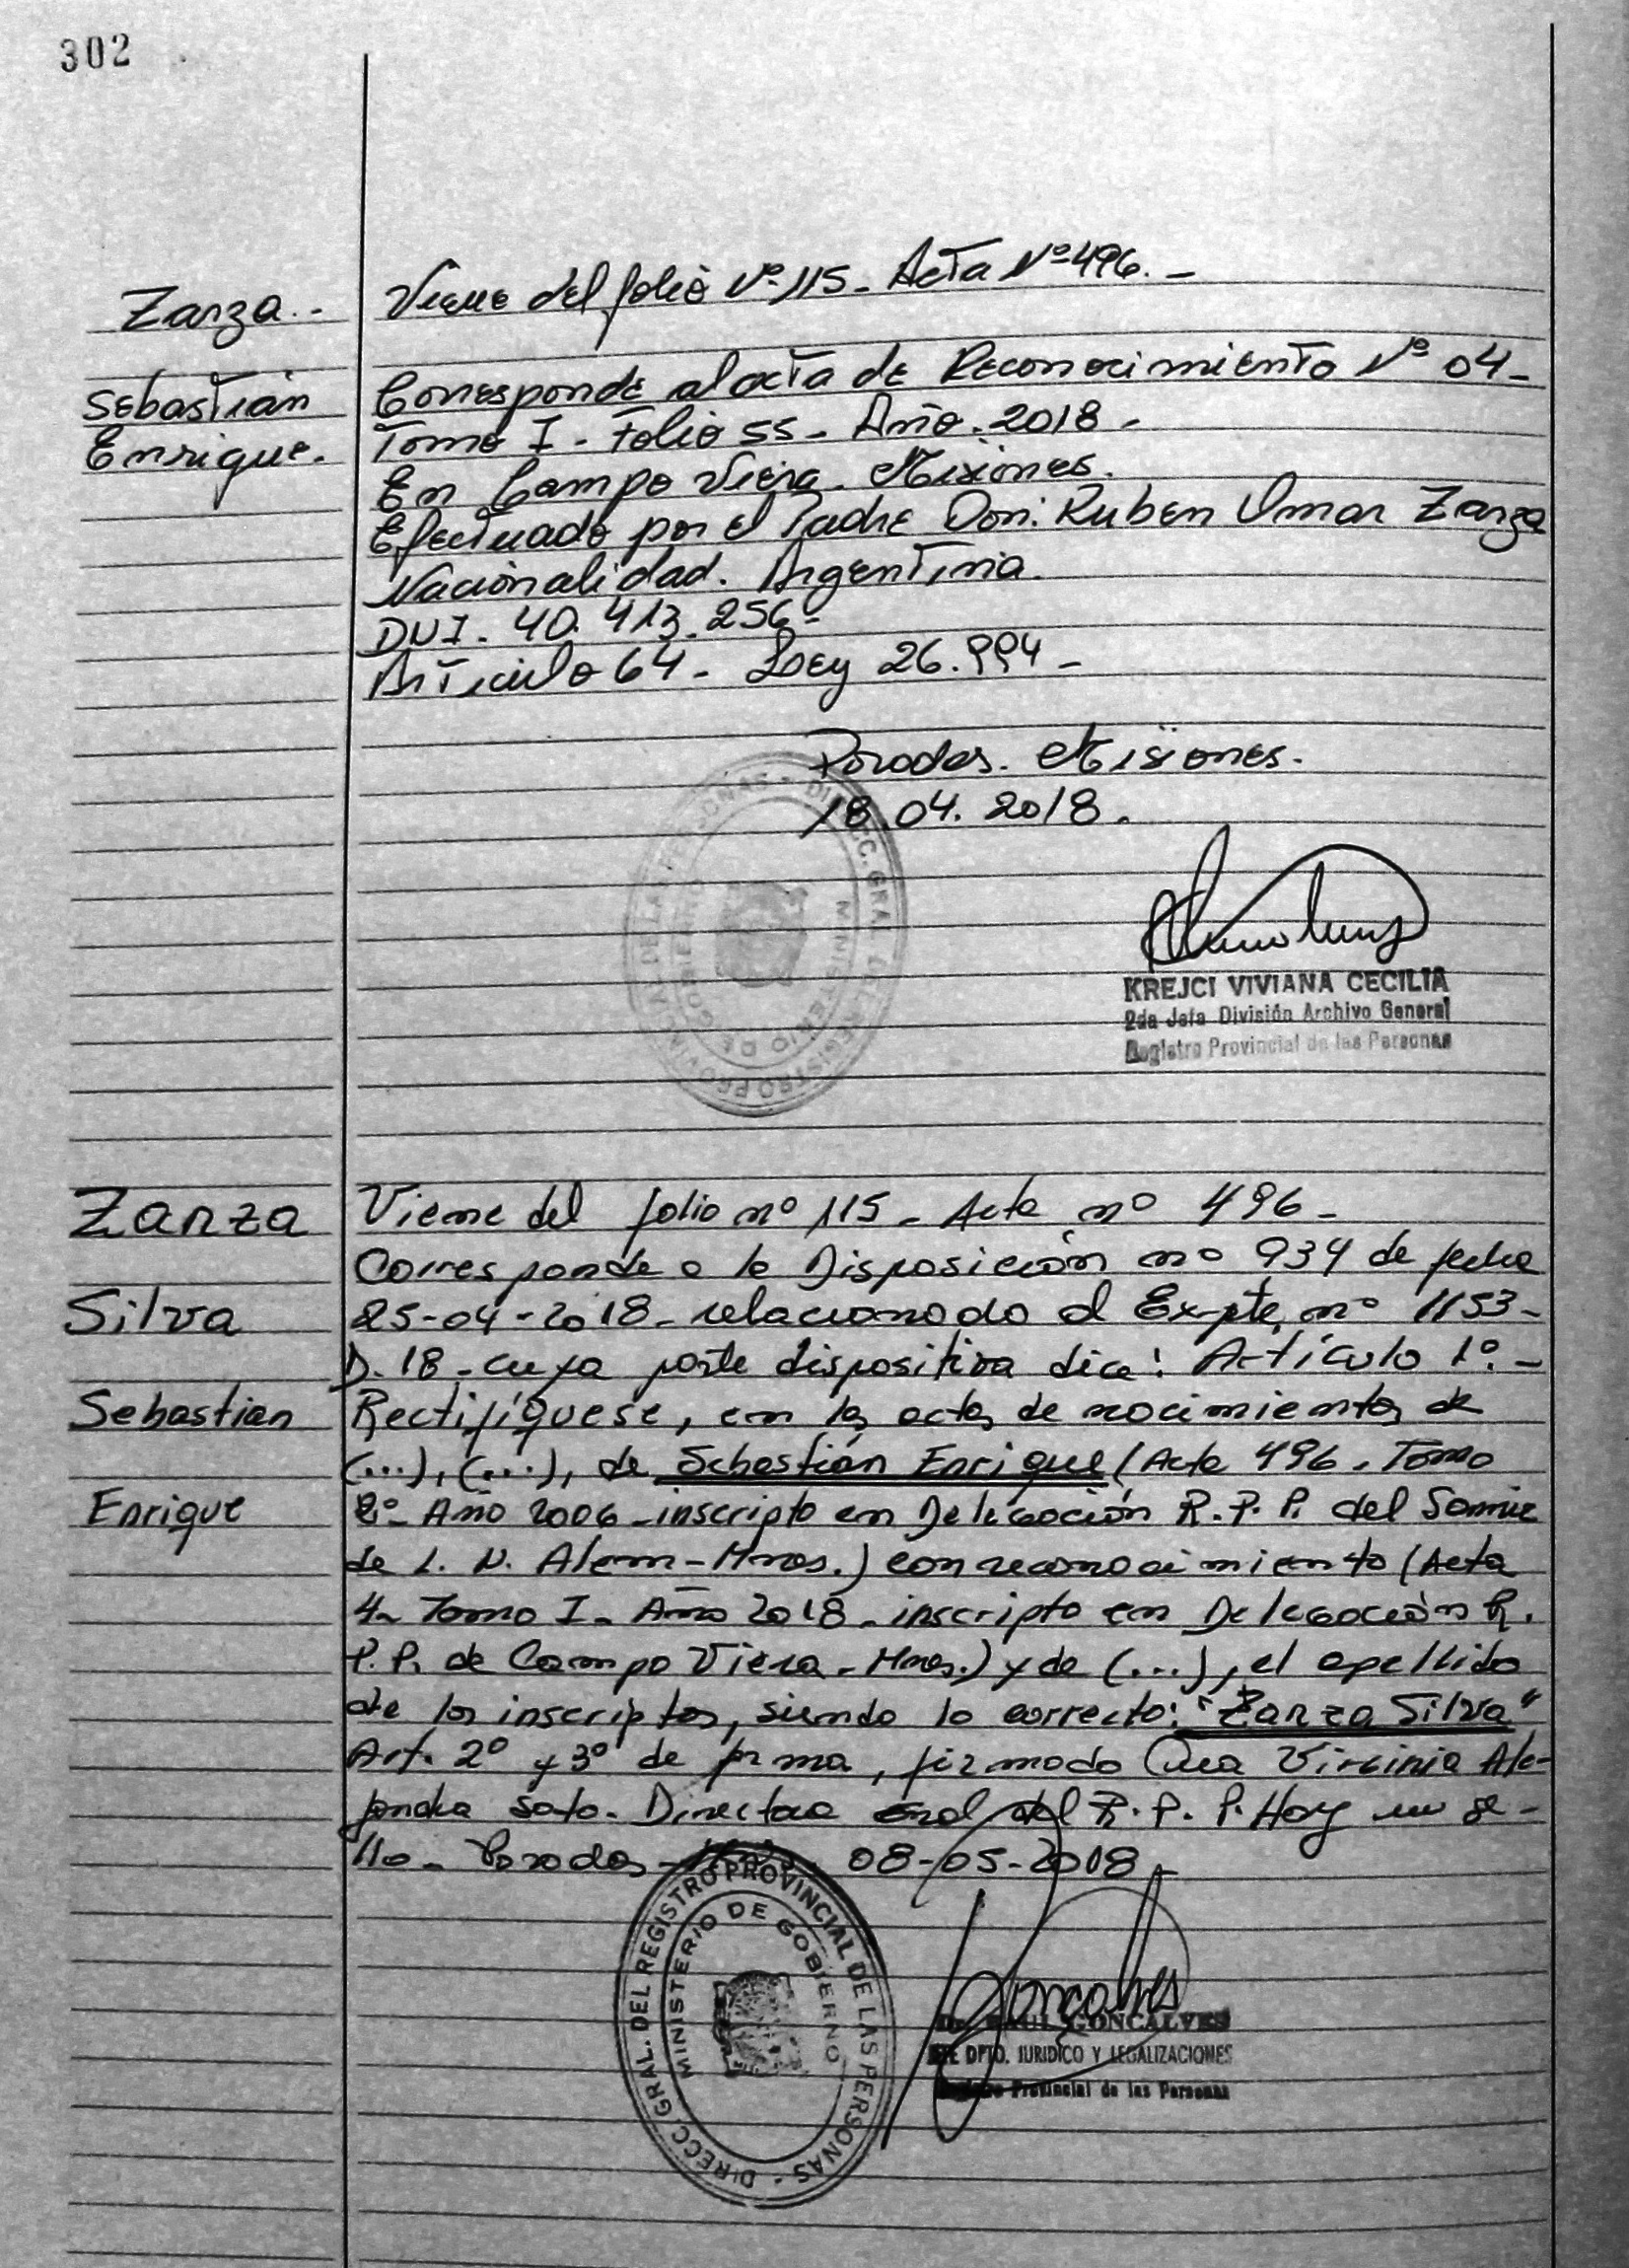 302
Zarza.-
Viene del folio Nº 115- Acta Nº 496.-
Sebastián
Enrique.
Corresponde al acta de Reconocimiento Nº 04-
Tomo I- Folio 55- Año. 2018-
En Campo Viera. Misiones.
Efectuado por el Padre Don: Ruben Omar Zarza
Nacionalidad. Argentina.
DNI. 40.413.256-
Artículo 64- Ley 26.994-
Posadas. Misiones.
18.04.2018.
KREJCI VIVIANA CECILIA
2da Jefa División Archivo General
Registro Provincial de las Personas
DIRECC. GRAL. DEL REGISTRO PROVINCIAL DE LAS PERSONAS -
MINISTERIO DE GOBIERNO
Zarza
Silva
Sebastian
Enrique
Viene del folio nº 115- Acta nº 496-
Corresponde a la Disposición nº 934 de fecha
25-04-2018- relacionado al Expte. nº 1153-
D. 18- cuya parte dispositiva dice: Artículo 1º.-
Rectifíquese, en las actas de nacimientos de
(...), (...), de Sebastián Enrique (Acta 496- Tomo
2º- Año 2006- inscripto en Delegación R.P.P. del
de L. N. Alem- Mnes.) con reconocimiento (Acta
4- Tomo I- Año 2018- inscripto en Delegación R.
P.P. de Campo Viera- Mnes.) y de (...), el apellido
de los inscriptos, siendo lo correcto: "Zarza Silva"
Art. 2º y 3º de forma, firmado Virginia Ale-
jandra Soto. Directora Gral del R.P.P. Hay un se-
llo- Posadas- 08-05-2018-
DIRECC. GRAL. DEL REGISTRO PROVINCIAL DE LAS PERSONAS -
MINISTERIO DE GOBIERNO
Goncalves
RAUL GONCALVES
DPTO. JURIDICO Y LEGALIZACIONES
Registro Provincial de las Personas